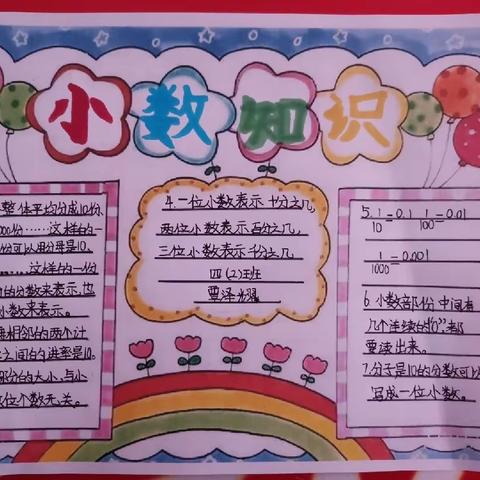 小数知识
整体平均分成10份、
000份……这样的一
份可以用分母是10、
……这样的一份
的分数来表示,也
小数来表示。
相邻的两个计
之间的进率是10。
部分的大小,与小
位个数无关。
4.一位小数表示十分之几,
两位小数表示百分之几,
三位小数表示千分之几
四(2)班
覃泽
5.1/10=0.1 1/100=0.01
1/1000=0.001
6.小数部份中间有
几个连续的"0",都
要读出来。
7.分子是10的分数可以
写成一位小数。